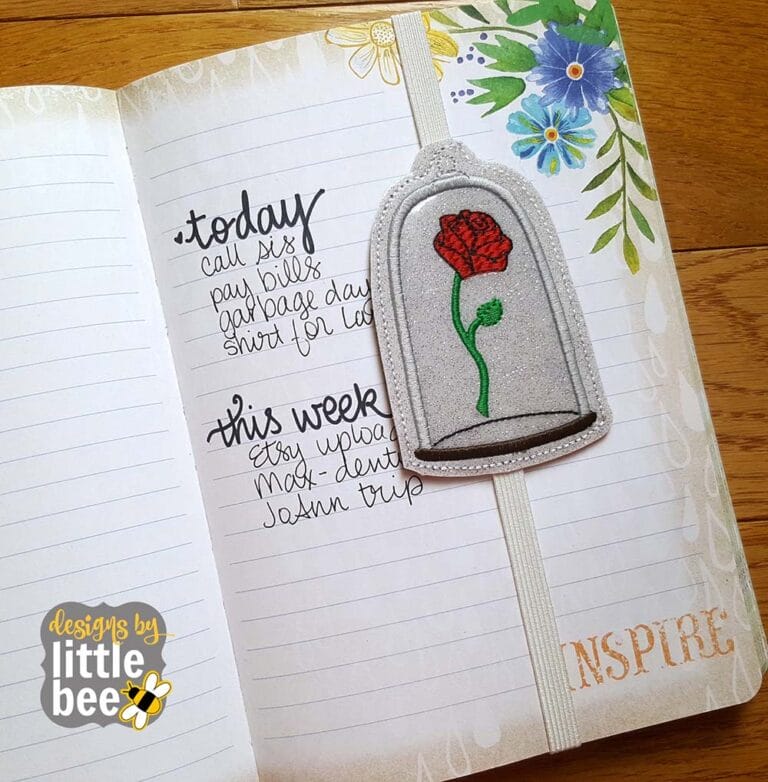 today
call sis
pay bills
garbage day
shirt for
this week
Etsy
Max-
JoAnn trip
INSPIRE
designs by
little
bee